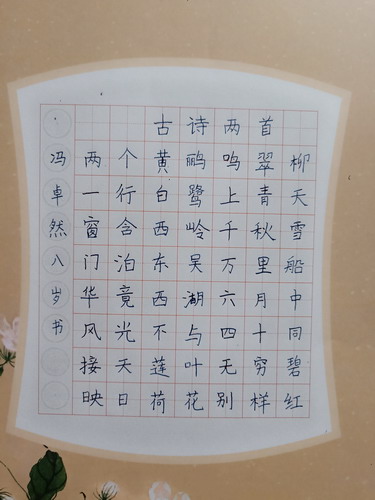 古诗两首
两个黄鹂鸣翠柳
一行白鹭上青天
窗含西岭千秋雪
门泊东吴万里船
华竟西湖六月中
风光不与四十同
接天莲叶无穷碧
映日荷花别样红
冯卓然八岁书